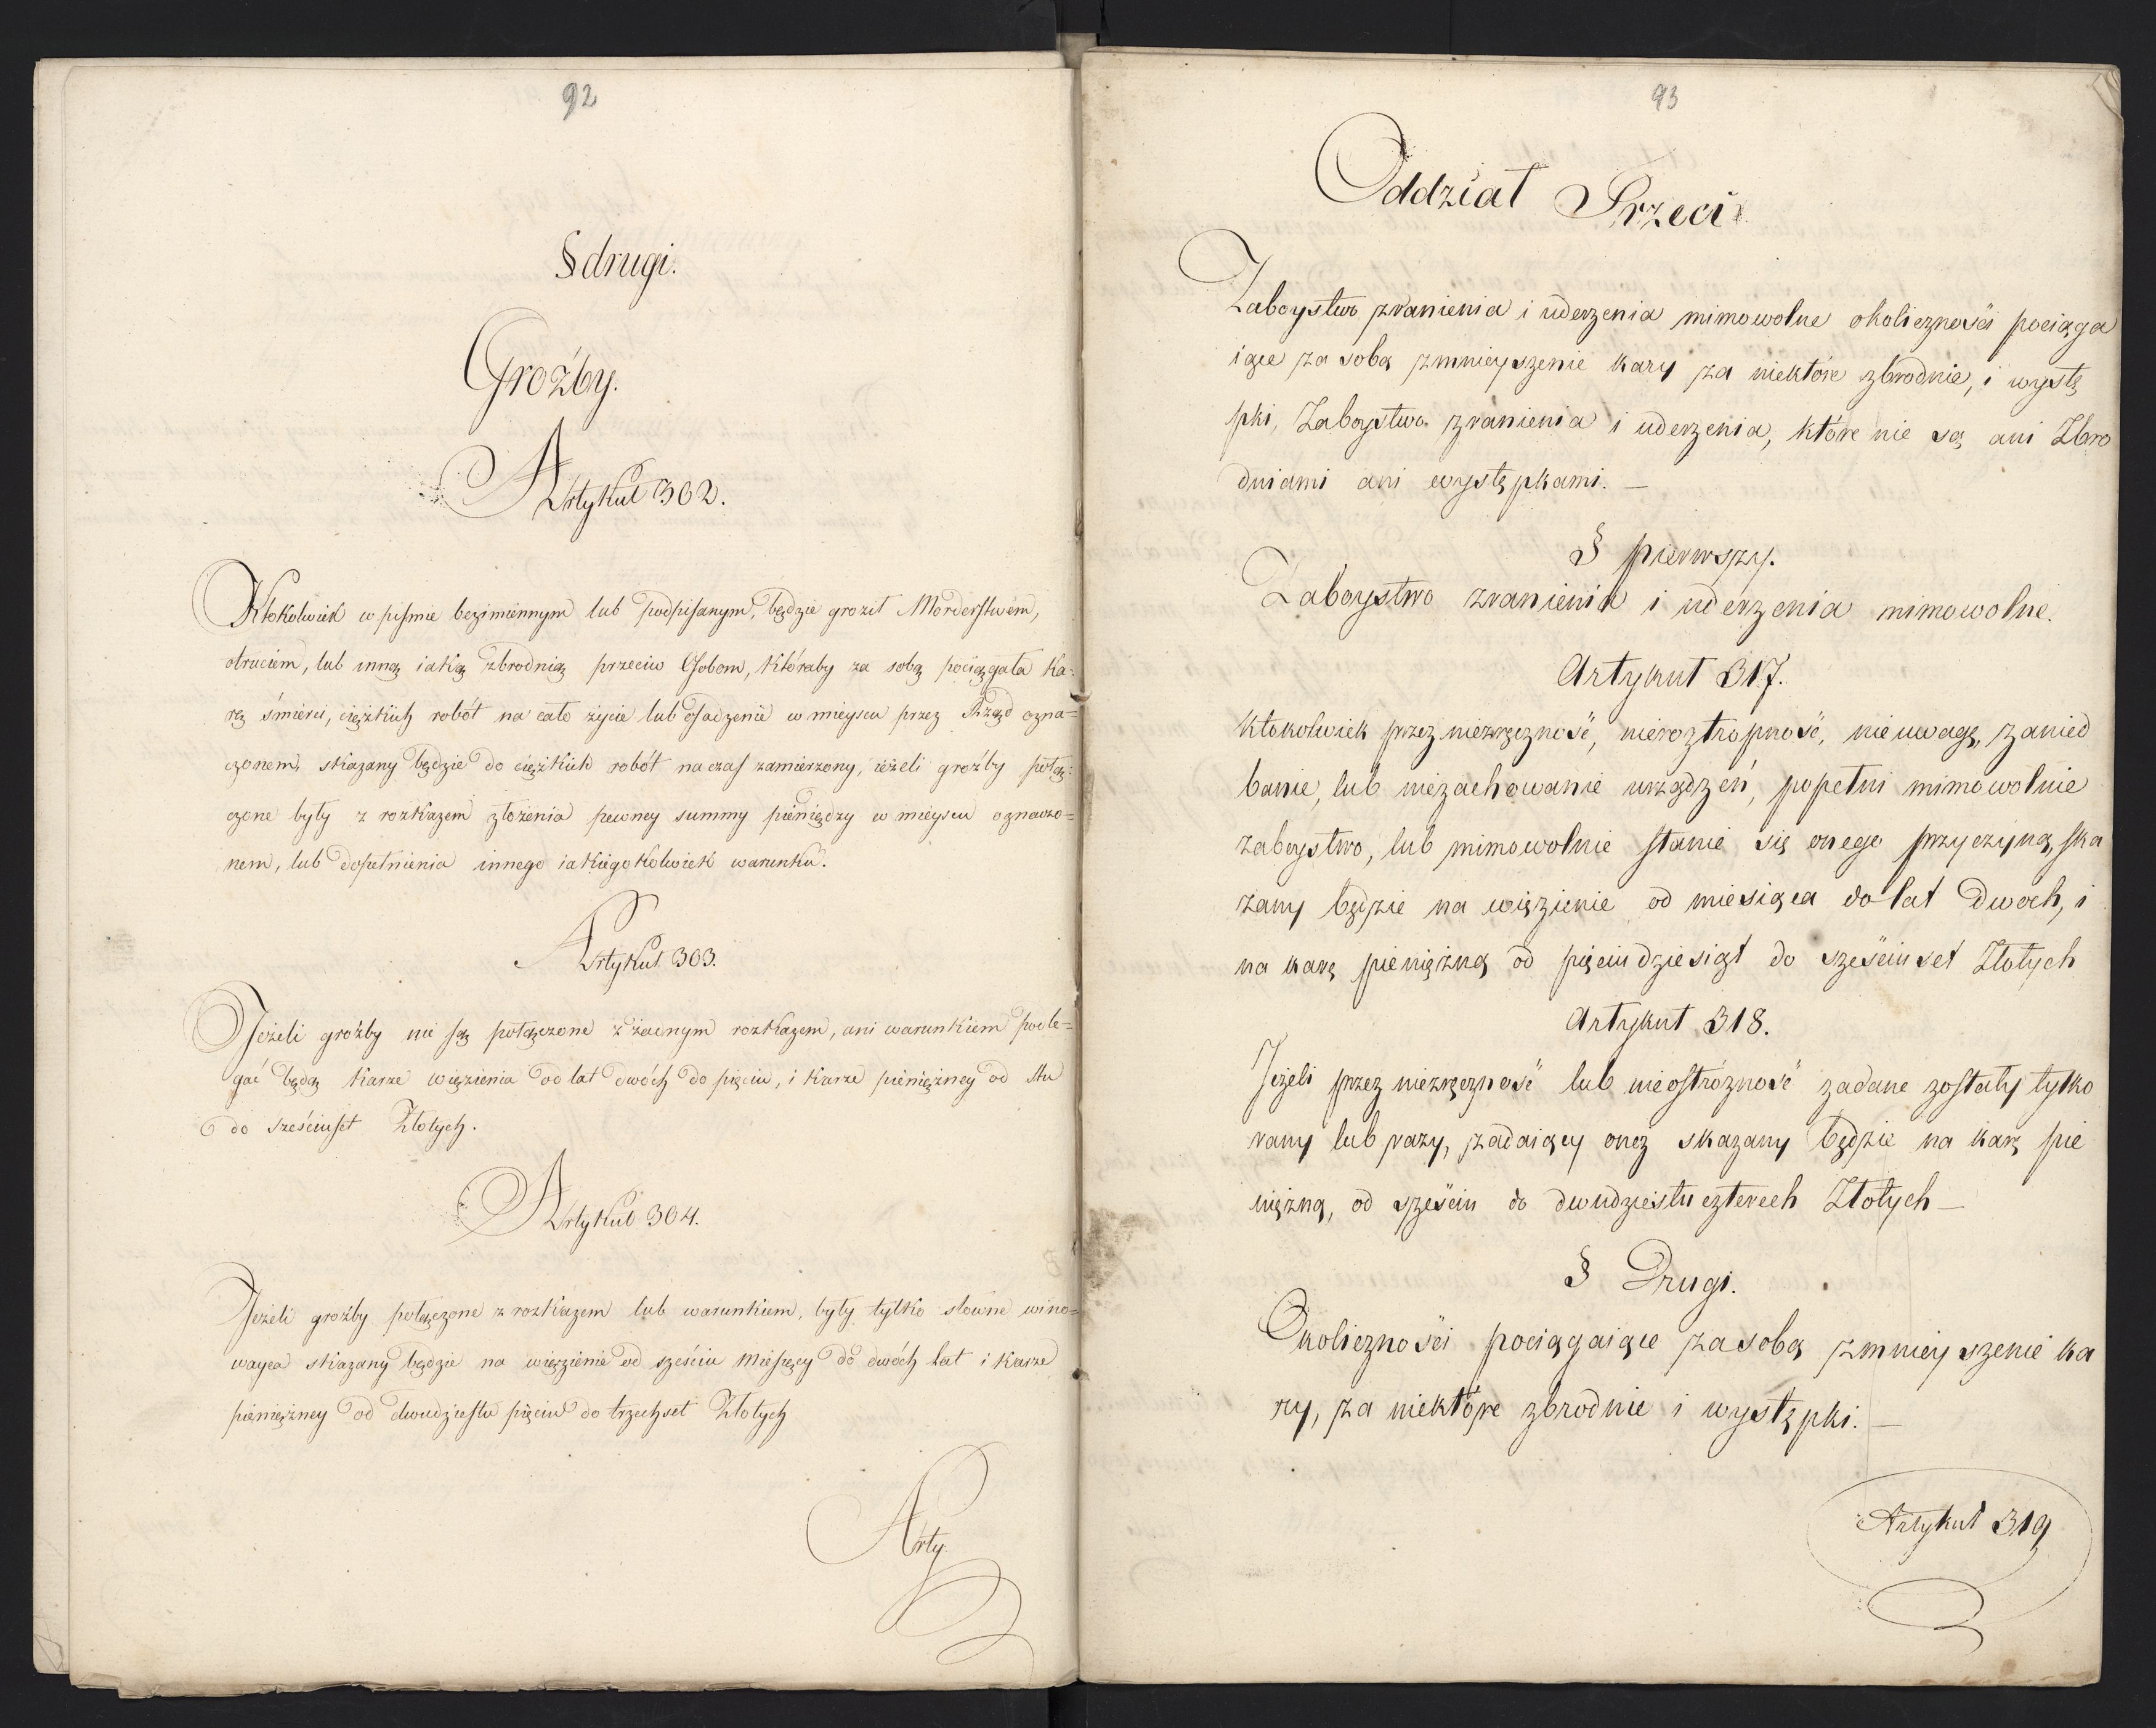 92
§ drugi.
Groźby.
Artykuł 302.
Ktokolwiek w piśmie bezimiennym lub podpisanym, będzie groził Morderstwem,
otruciem, lub inną iaką zbrodnią przeciw Osobom, któraby za sobą pociągała ka=
rę śmierci, ciężkich robót na całe życie lub osadzenie w mieyscu przez Rząd ozna=
czonem, skazany będzie do ciężkich robót na czas zamierzony, ieżeli groźby połą=
czone były z rozkazem złożenia pewney summy pieniędzy w mieyscu oznaczo=
nem, lub dopełnienia innego iakiegokolwiek warunku.
Artykuł 303.
Jeżeli groźby nie są połączone z żadnym rozkazem, ani warunkiem podle=
gać będą karze więzienia od lat dwóch do pięciu, i karze pieniężney od stu
do sześciuset Złotych.
Artykuł 304.
Jeżeli groźby połączone z rozkazem lub warunkiem, były tylko słowne wino=
wayca skazany będzie na więzienie od sześciu Miesięcy do dwóch lat i karze
pieniężney od dwudziestu pięciu do trzechset Złotych
Arty
93
Oddział Trzeci
Zaboystwo zranienia i uderzenia mimowolne okoliczności pociąga
iące za sobą zmnieyszenie kary za niektóre zbrodnie, i wystę
pki, Zaboystwa zranienia i uderzenia, które nie są ani Zbro
dniami ani występkami. —
§ pierwszy.
Zaboystwo zranienia i uderzenia mimowolne.
Artykuł 317.
Ktokolwiek przez niezręczność, nieroztropność, nieuwagę, zanied
banie, lub niezachowanie urządzeń, popełni mimowolnie
zaboystwo, lub mimowolnie stanie się onego przyczyną, ska
zany będzie na więzienie od miesiąca do lat Dwoch, i
na karę pieniężną od pięciudziesiąt do sześciuset Złotych
Artykuł 318.
Jeżeli przez niezręczność lub nieostróżność zadane zostały tylko
rany lub razy, zadaiący onez skazany będzie na karę pie
niężną, od sześciu do dwudziestu czterech Złotych —
§ Drugi.
Okoliczności pociągaiące za sobą zmnieyszenie ka
ry, za niektóre zbrodnie i występki. —
Artykuł 319